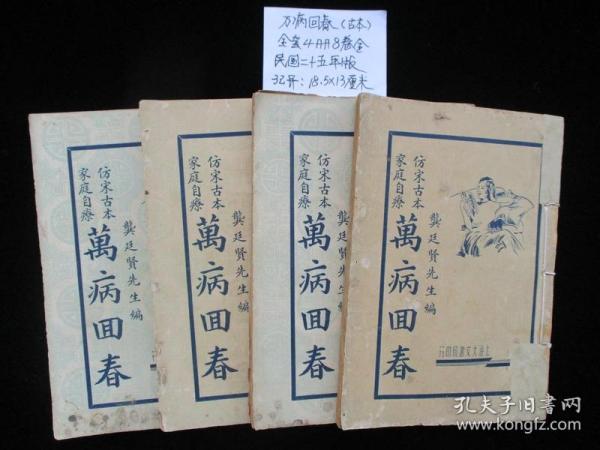 万病回春（古本）
全套4册8卷全
民国二十五年版
32开：18.5×13厘米
仿宋古本
家庭自療
龔廷賢先生編
萬病回春
仿宋古本
家庭自療
龔廷賢先生編
萬病回春
仿宋古本
家庭自療
龔廷賢先生編
萬病回春
仿宋古本
家庭自療
龔廷賢先生編
萬病回春
上海大文書局印行
孔夫子旧书网
www.kongfz.com